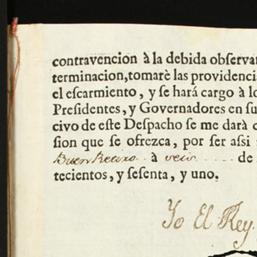 contravencion à la debida observa
terminacion, tomarè las providenci
el escarmiento, y se hará cargo à lo
Presidentes, y Governadores en su
civo de este Despacho se me dará c
sion que se ofrezca, por ser assi
Buen Retiro à veis de
tecientos, y sesenta, y uno.
Yo El Rey.